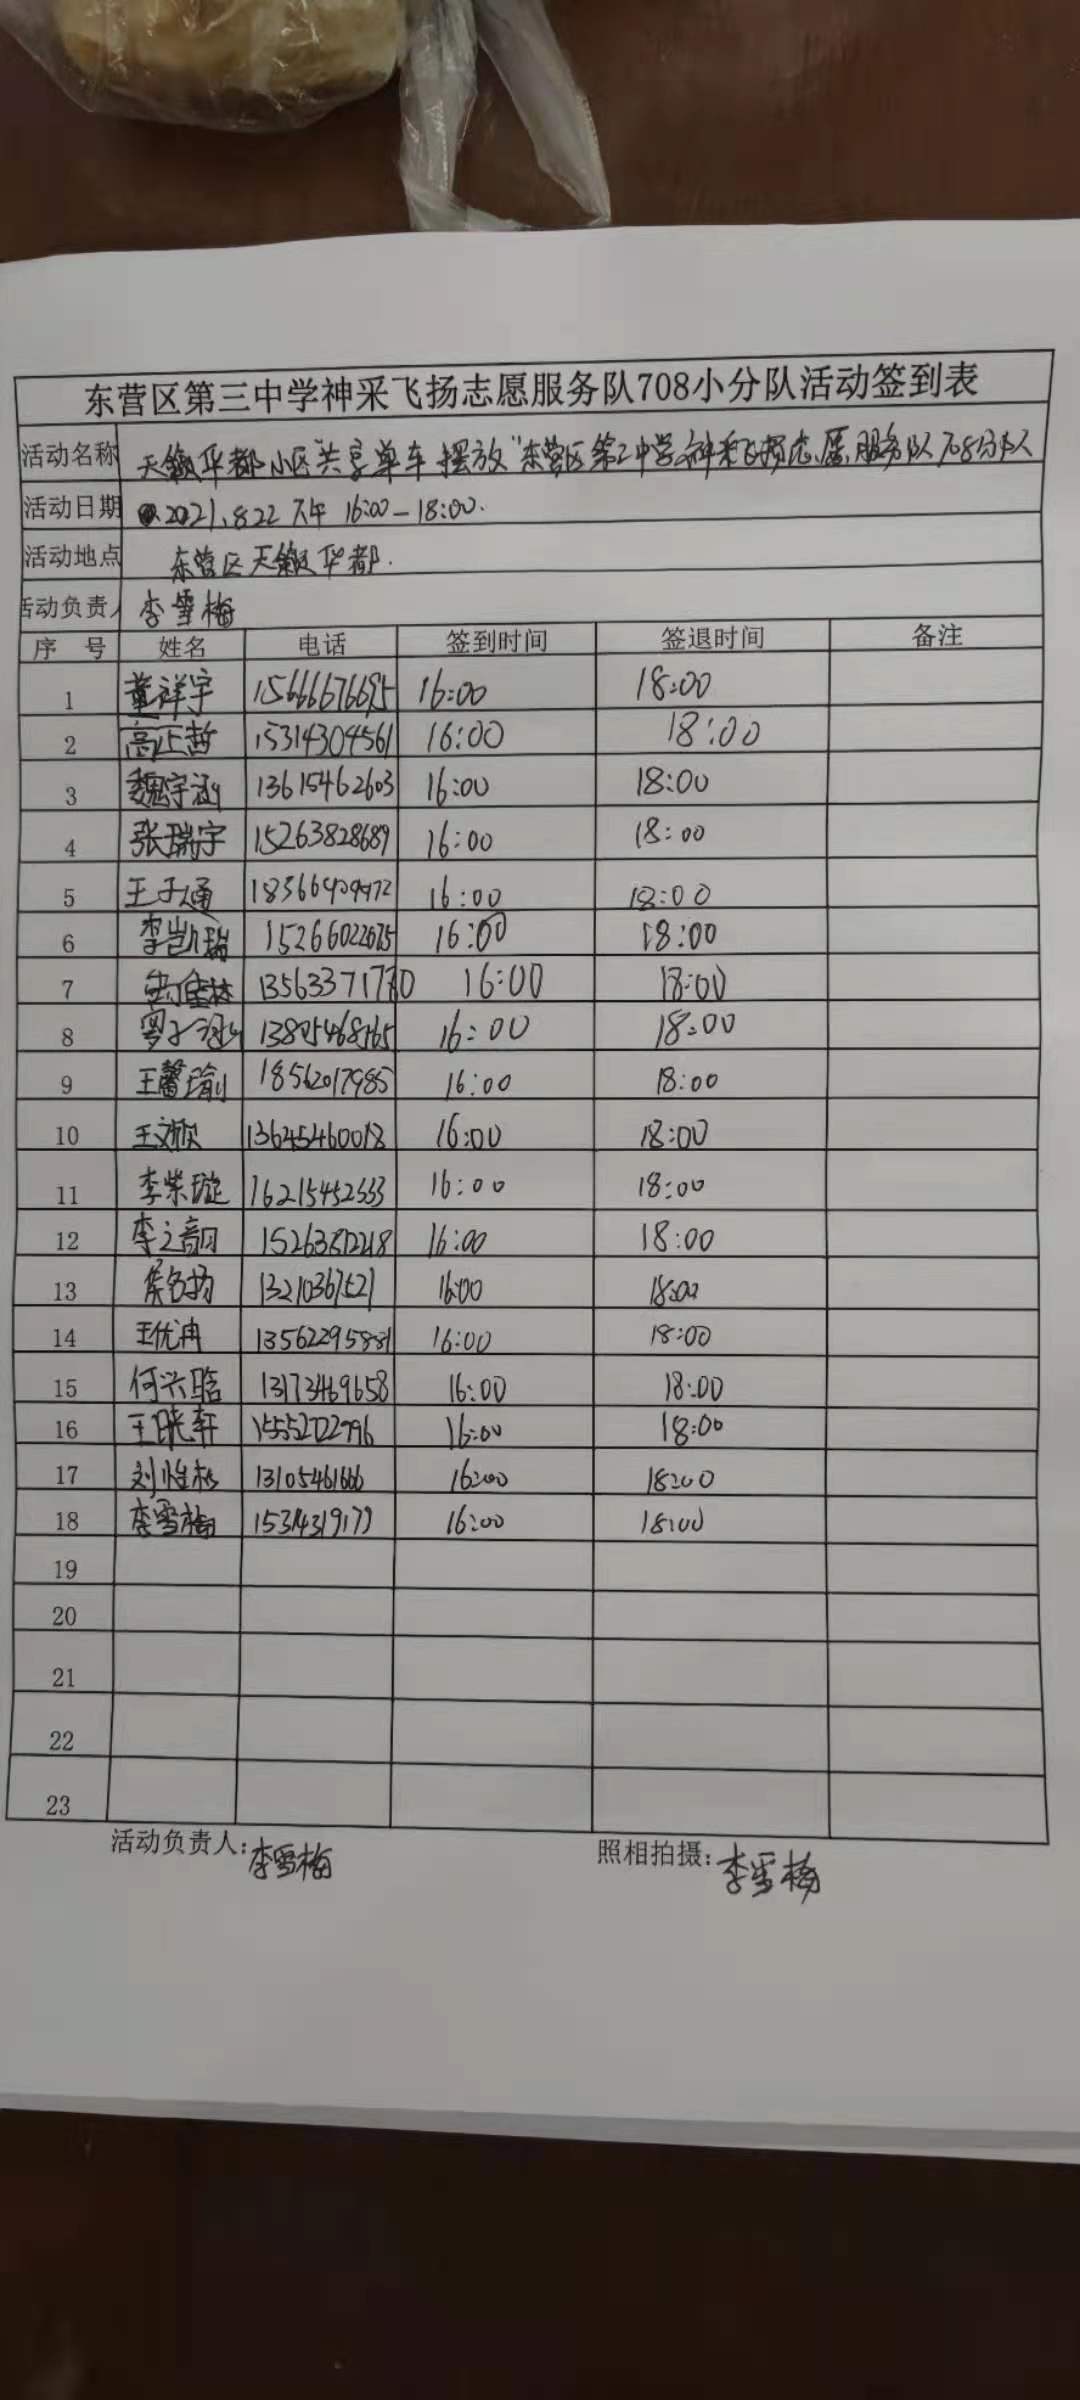 东营区第三中学神采飞扬志愿服务队708小分队活动签到表
活动名称 天徽华都小区"共享单车摆放"东营区第三中学神采飞扬志愿服务队708分队
活动日期 2021.8.22 下午 16:00-18:00.
活动地点 东营区天徽华都.
活动负责人 李雪梅
序号 姓名 电话 签到时间 签退时间 备注
1 董祥宇 15666676695 16:00 18:00
2 高正哲 15314304561 16:00 18:00
3 魏宇涵 13615462603 16:00 18:00
4 张瑞宇 15263828689 16:00 18:00
5 王子通 16:00 18:00
6 李凯瑞 15266022675 16:00 18:00
7 16:00 18:00
8 16:00 18:00
9 王馨瑜 18562017985 16:00 18:00
10 13645460018 16:00 18:00
11 李紫璇 16215452333 16:00 18:00
12 李之韵 16:00 18:00
13 侯名扬 13210367521 16:00 18:00
14 王优冉 13562295881 16:00 18:00
15 何兴临 13173469658 16:00 18:00
16 王晓轩 15552722796 16:00 18:00
17 13105461666 16:00 18:00
18 李雪梅 15314319179 16:00 18:00
19
20
21
22
23
活动负责人: 李雪梅 照相拍摄: 李雪梅